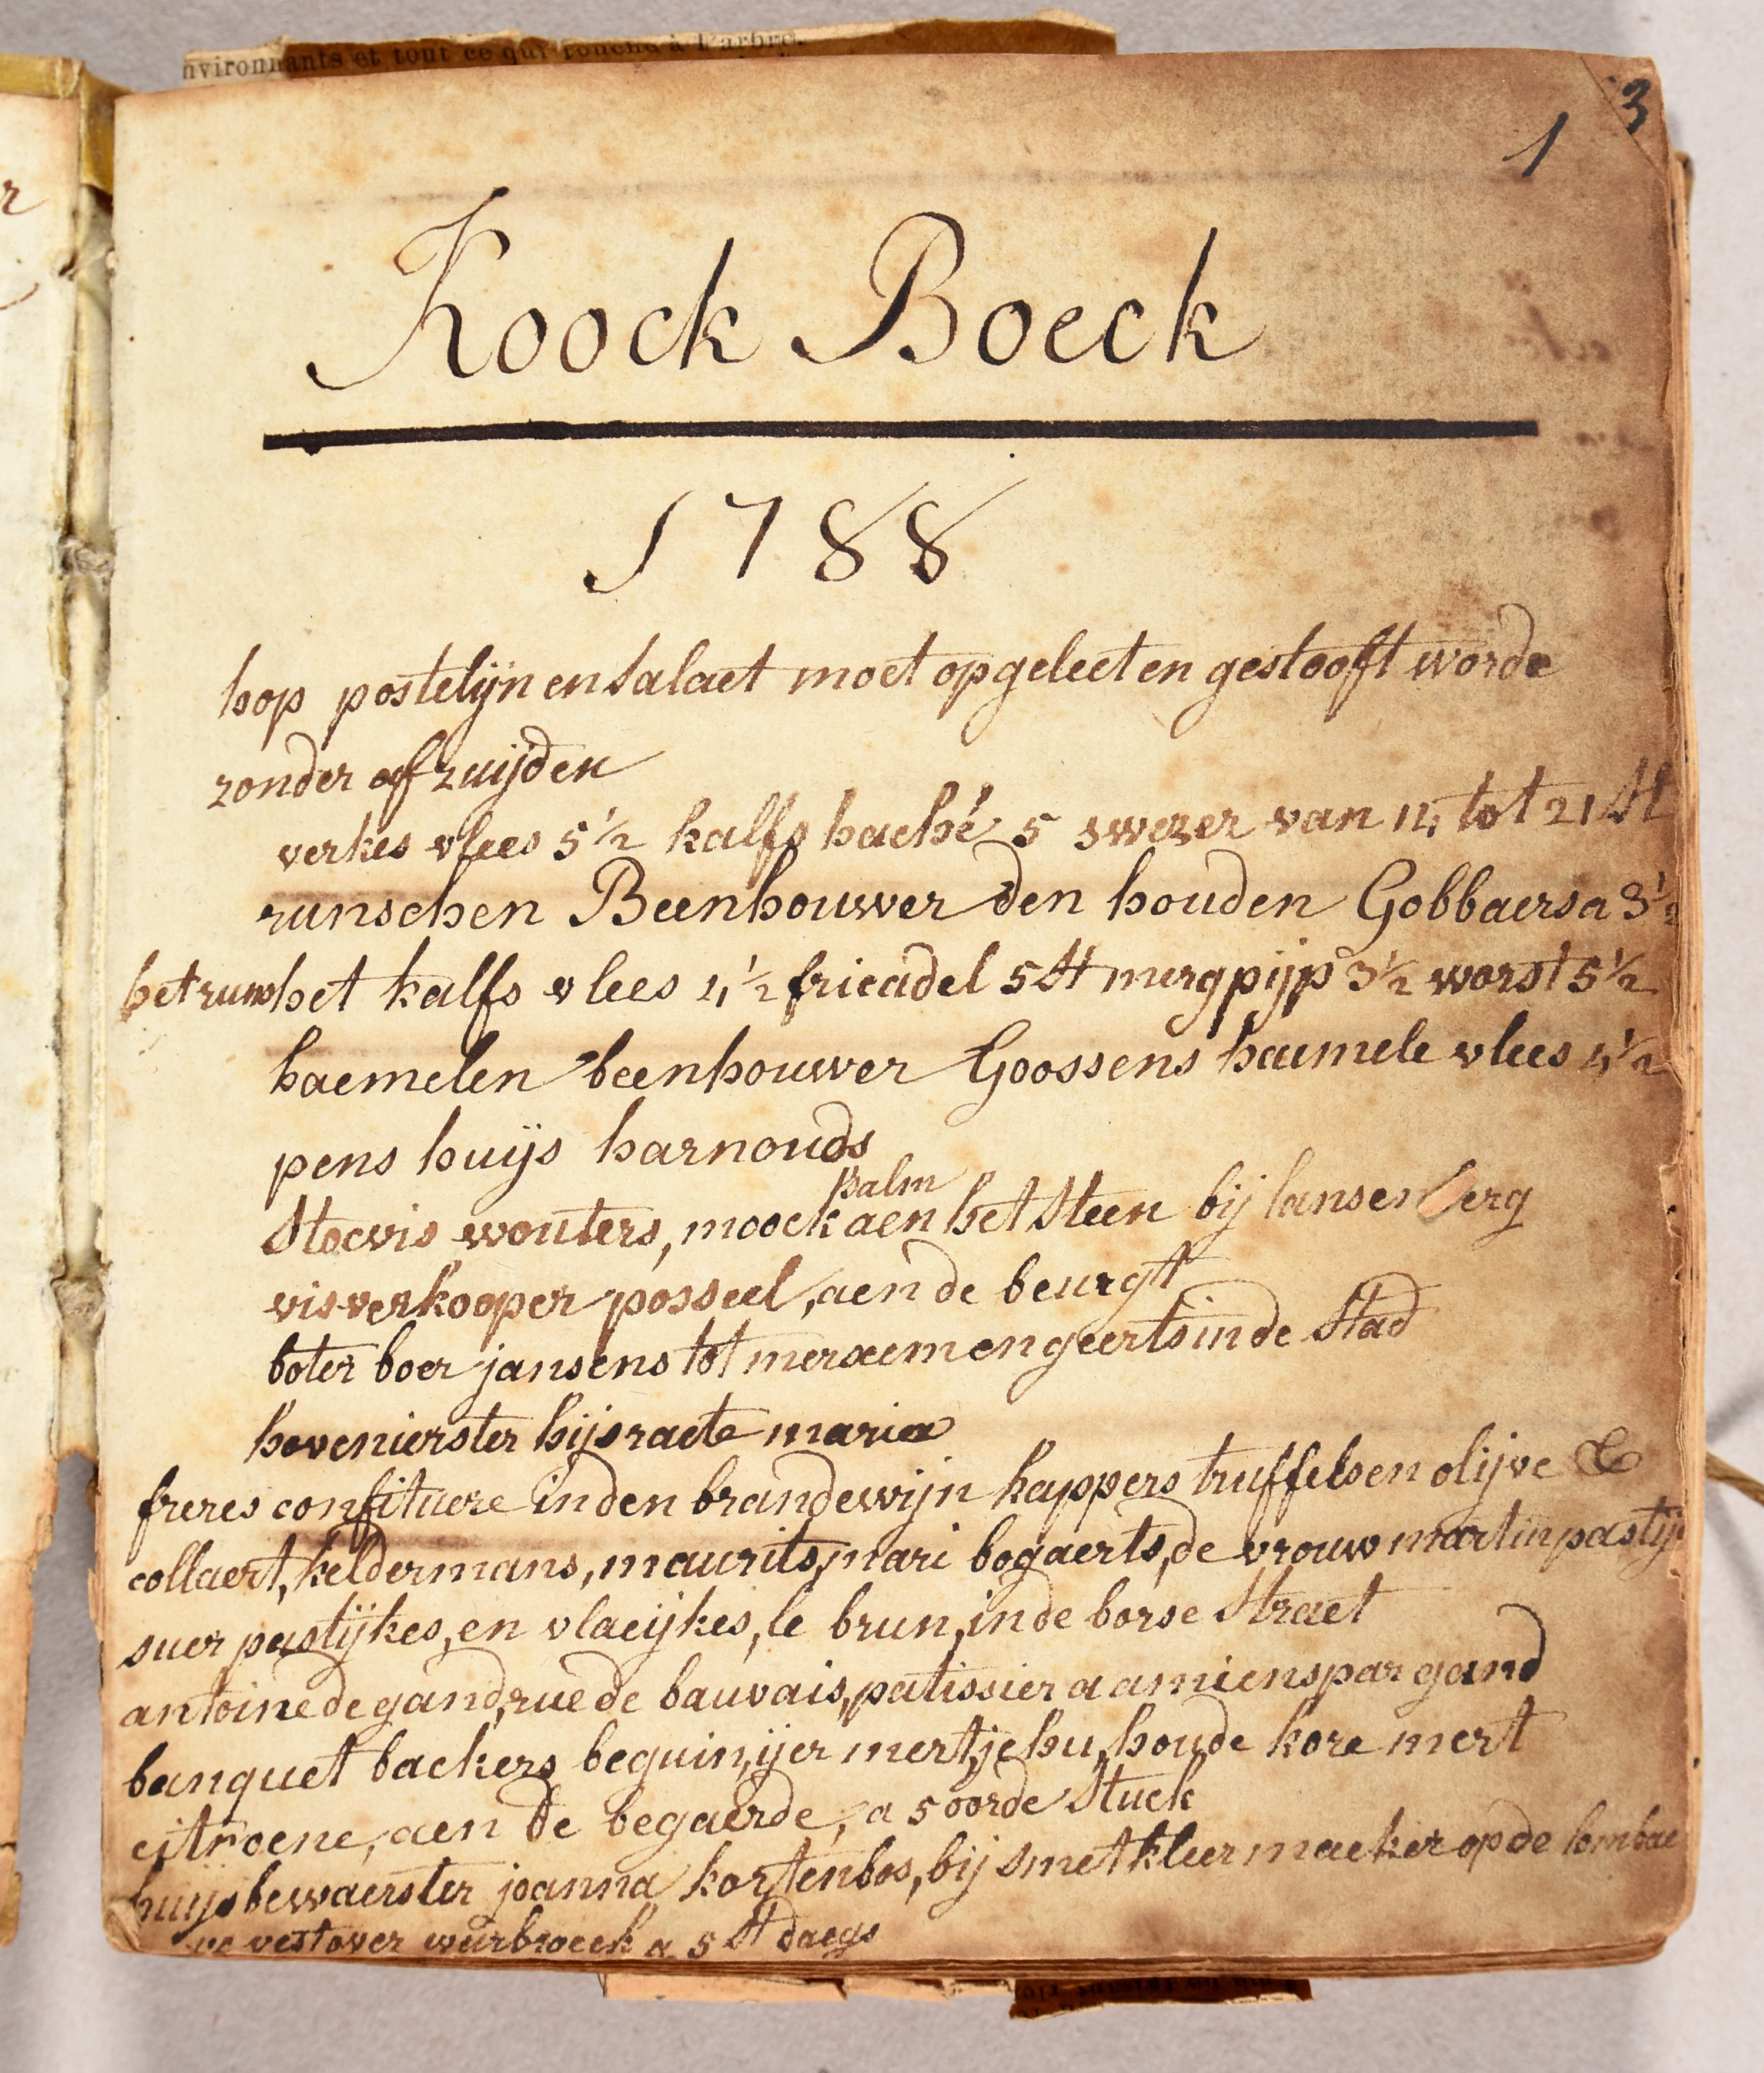 nvironnants et tout ce qui touche à l'arbre.
3
1
Koock Boeck
1788
hop postelijn en salaet moet opgeleet en gestooft worde
zonder af zuijden
verkes vlees 5½ kalfs haché 5 sweser van 14 tot 21 st
runschen Beenhouwer den houden Gobbaers a 3½
het runs het kalfs vlees 4½ fricadel 5 st mergpijp 3½ worst 5½
haemelen beenhouwer Goossens haemele vlees 4½
pens huijs harnouds
palm
Stocvis wouters, moock aen het Steen bij lansenberg
visverkooper posseel, aen de beurgt
boter boer jansens tot merxem en geerts in de Stad
hovenierster hijsraete maria
freres confituere in den brandewijn kappers truffels en olijve &
collaert, keldermans, maurits, mari bogaerts, de vrouw martin pastij
suer pastijkes, en vlaeijkes, le brun, in de borse Straet
antoine de gand, rue de bauvais, patissier a amiens par gand
banquet backers beguin, ijer mert, jehu, houde kore mert
citroene, aen de begaerde, a 5 oorde Stuck
huijsbewaerster joanna kortenbos, bij smet kleermaeker op de lombae
vest over weirbroeck a 5 st daegs